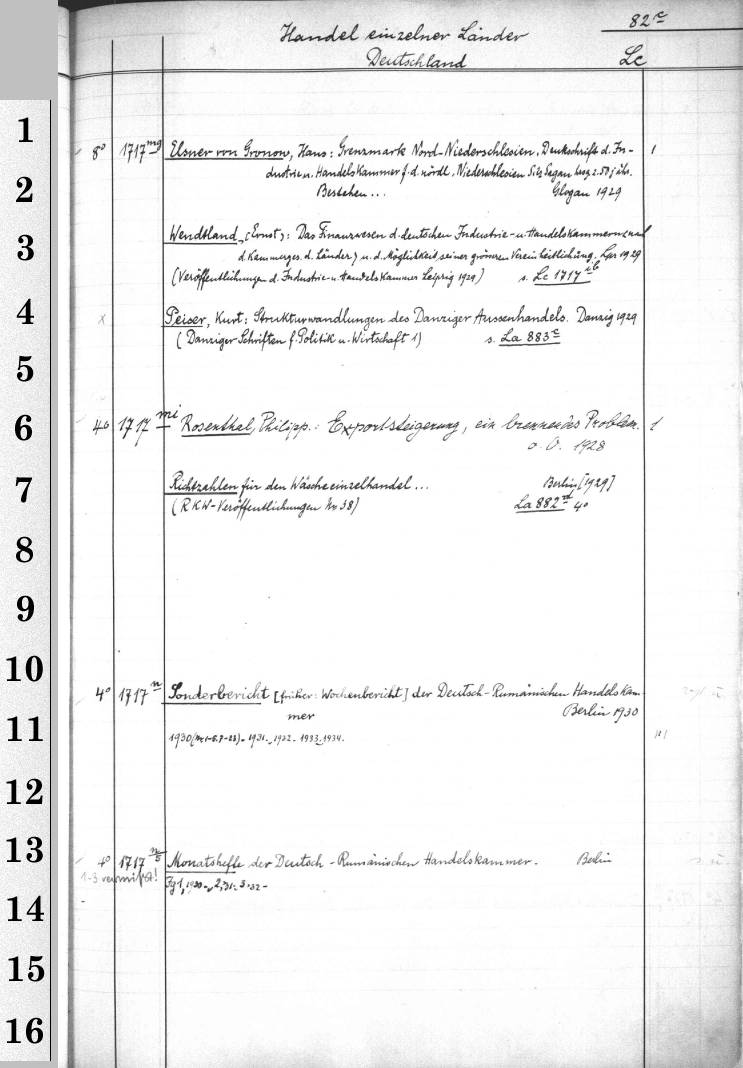 82c
Handel einzelner Länder
Deutschland
Lc
1
8° 1717 mg Elsner von Gronow, Hans: Grenzmark Nord-Niederschlesien. Denkschrift d. In- 1
dustrie u. Handelskammer f. d. nördl. Niederschlesien Sitz Sagan
2
Bestehen... Glogau 1929
3
Wendtland, (Ernst): Das Finanzwesen d. deutschen Industrie- u. Handelskammern (und
d. Kammerges. d. Länder) u. d. Möglichkeit seiner grösseren Vereinheitlichung. Lpz 1929
(Veröffentlichungen d. Industrie- u. Handelskammer Leipzig 1929) s. Lc 1717
4
x Peiser, Kurt: Strukturwandlungen des Danziger Aussenhandels. Danzig 1929
(Danziger Schriften f. Politik u. Wirtschaft 1) s. La 883c
5
6
4° 1717 mi Rosenthal, Philipp.: Exportsteigerung, ein brennendes Problem. 1
o. O. 1928
7
Richtzahlen für den Wäscheeinzelhandel... Berlin [1929]
(RKW-Veröffentlichungen Nr 38) La 882 d 4°
8
9
10
4° 1717 n Sonderbericht [früher: Wochenbericht] der Deutsch-Rumänischen Handelskam-
mer Berlin 1930
11
1930 (Nr 1-5. 7-28)- 1931-, 1932- 1933, 1934.
12
13
4° 1717 n5 Monatshefte der Deutsch-Rumänischen Handelskammer. Berlin
1-3 vermißt! Jg 1, 1930-, 2, 31-, 3, 32-
14
15
16